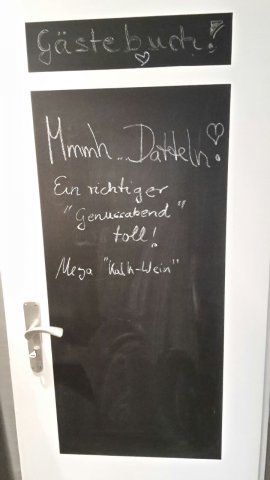 Gästebuch!
Mmmh... Datteln!
Ein richtiger
"Genussabend"
toll!
Mega "Kalk-Wein"